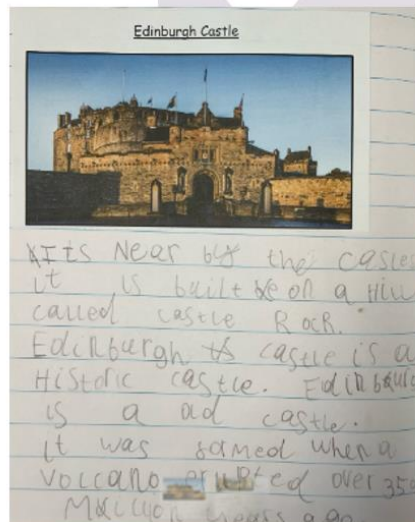 Edinburgh Castle
Its Near by the casles
it is built on a Hill
called castle Rock.
Edinburgh castle is a
Historic castle. Edinbou
is a old castle.
it was formed when a
volccano erupted over 350
Million years ago